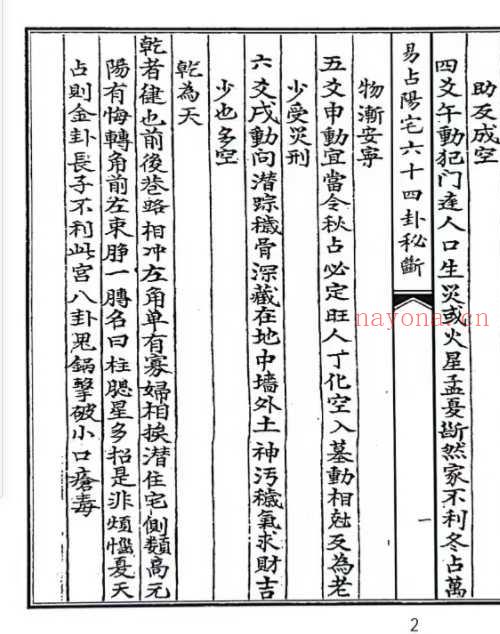 助反成空
四爻午動犯门逹人口生災或火星孟憂斷然家不利冬占萬
易占陽宅六十四卦秘斷
一
物漸安寧
五爻申動宜當令秋占必定旺人丁化空入墓動相尅反為老
少受災刑
六爻戌動向潜踪穢骨深藏在地中墙外土神汚穢氣求財吉
少也多空
乾為天
乾者健也前後巷路相冲左角单有寡婦相挨潜住宅側類高元
陽有悔轉角前左東脖一膊名曰柱腮星多招是非煩惱憂天
占則金卦長子不利此宮八卦鬼鍋擊破小口瘡毒
nayona.cn
2